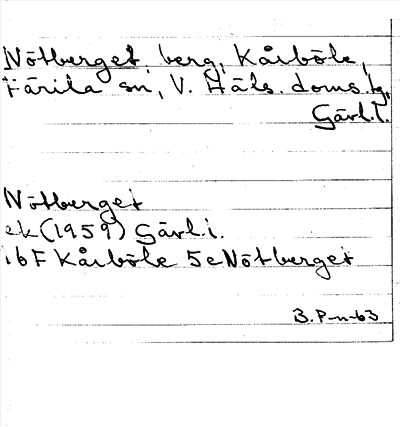 Nötberget, berg, Kårböle,
Färila sn, V. Häls. doms.tg,
Gävl.l.
Nötberget
ek (1959) Gävl.l.
16F Kårböle 5e Nötberget
B.P-n-63